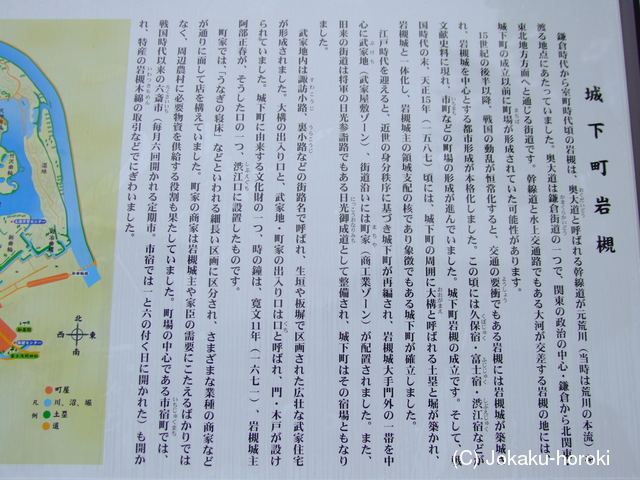 城下町岩槻
鎌倉時代から室町時代頃の岩槻は、奥大道と呼ばれる幹線道が元荒川（当時は荒川の本流）を
渡る地点にあたっていました。奥大道は鎌倉街道の一つで、関東の政治の中心・鎌倉から北関東、
東北地方方面へと通じる街道です。幹線道と水上交通路でもある大河が交差する岩槻の地には、
城下町の成立以前に町場が形成されていた可能性があります。
15世紀の後半以降、戦国の動乱が恒常化すると、交通の要衝でもある岩槻には岩槻城が築城さ
れ、岩槻城を中心とする都市形成が本格化しました。この頃には久保宿・富士宿・渋江宿などが
文献史料に現れ、市町などの町場の形成が進んでいました。城下町岩槻の成立です。そして、戦
国時代の末、天正15年（一五八七）頃には、城下町の周囲に大構と呼ばれる土塁と堀が築かれ、
岩槻城と一体化し、岩槻城主の領域支配の核であり象徴でもある城下町が確立しました。
江戸時代を迎えると、近世の身分秩序に基づき城下町が再編され、岩槻城大手門外の一帯を中
心に武家地（武家屋敷ゾーン）、街道沿いには町家（商工業ゾーン）が配置されました。また、
旧来の街道は将軍の日光参詣路でもある日光御成道として整備され、城下町はその宿場ともなり
ました。
武家地内は諏訪小路、裏小路などの街路名で呼ばれ、生垣や板塀で区画された広壮な武家住宅
が形成されました。大構の出入り口と、武家地・町家の出入り口は口と呼ばれ、門・木戸が設け
られていました。城下町に由来する文化財の一つ、時の鐘は、寛文11年（一六七一）、岩槻城主
阿部正春が、そうした口の一つ、渋江口に設置したものです。
町家では、「うなぎの寝床」などといわれる細長い区画に区分され、さまざまな業種の商家など
が通りに面して店を構えていました。町家の商家は岩槻城主や家臣の需要にこたえるばかりでは
なく、周辺農村に必要物資を供給する役割も果たしていました。町場の中心である市宿町では、
戦国時代以来の六斎市（毎月六回開かれる定期市。市宿では一と六の付く日に開かれた）も開か
れ、特産の岩槻木綿の取引などでにぎわいました。
北
西
東
南
凡例
町屋
川、沼、堀
土塁
道
(C)Jokaku-horoki